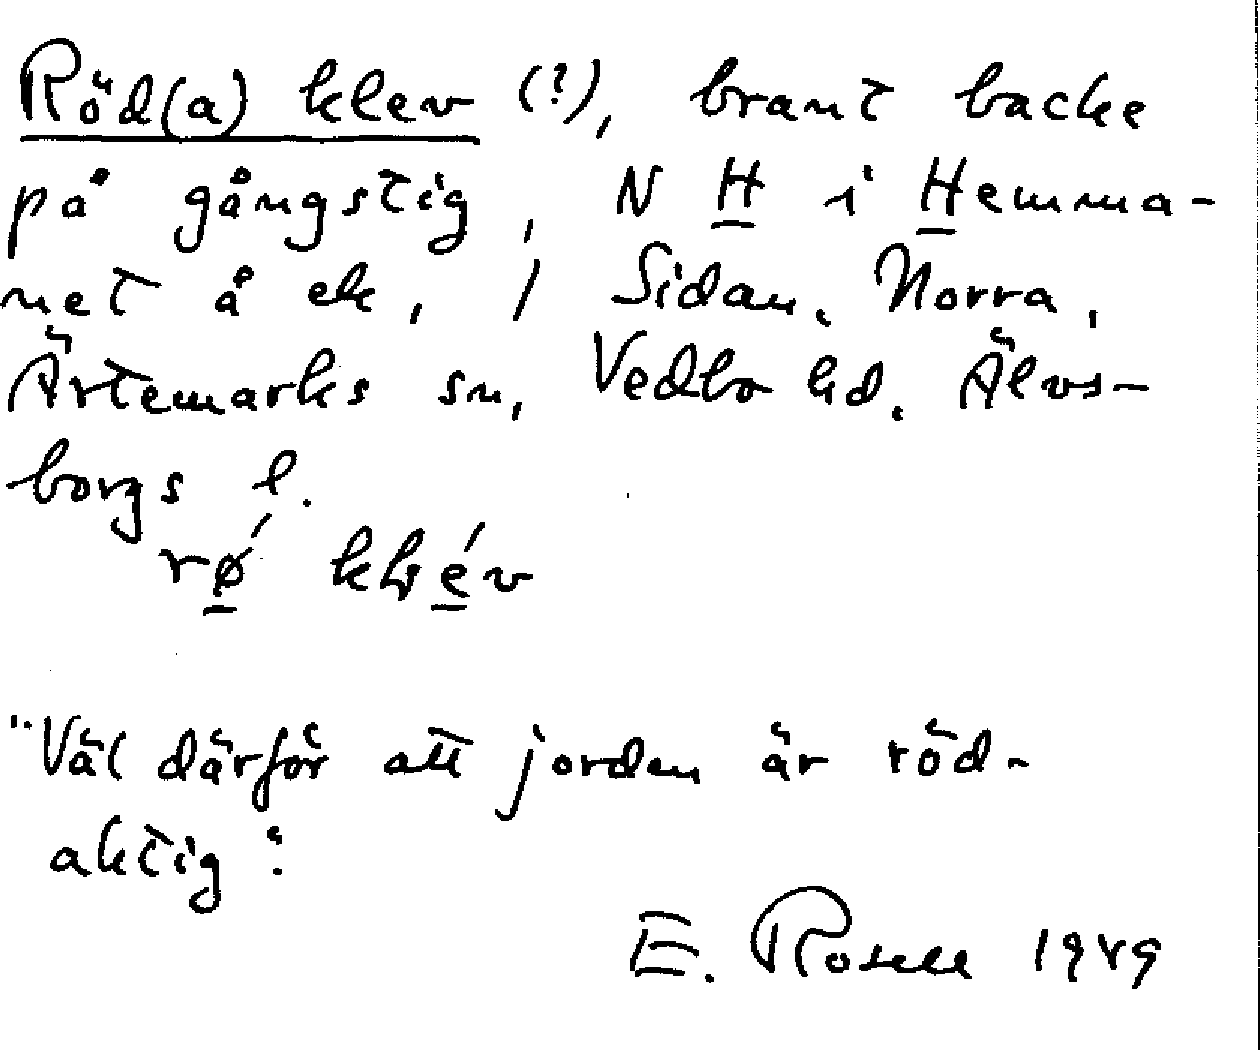 Röd(a) klev (?), brant backe
på gångstig, N H i Hemma-
net å ek, / Sidan, Norra,
Ärtemarks sn, Vedbo hd. Älvs-
borgs l.
rǿ klév
"Väl därför att jorden är röd-
aktig".
E. Rosell 1949